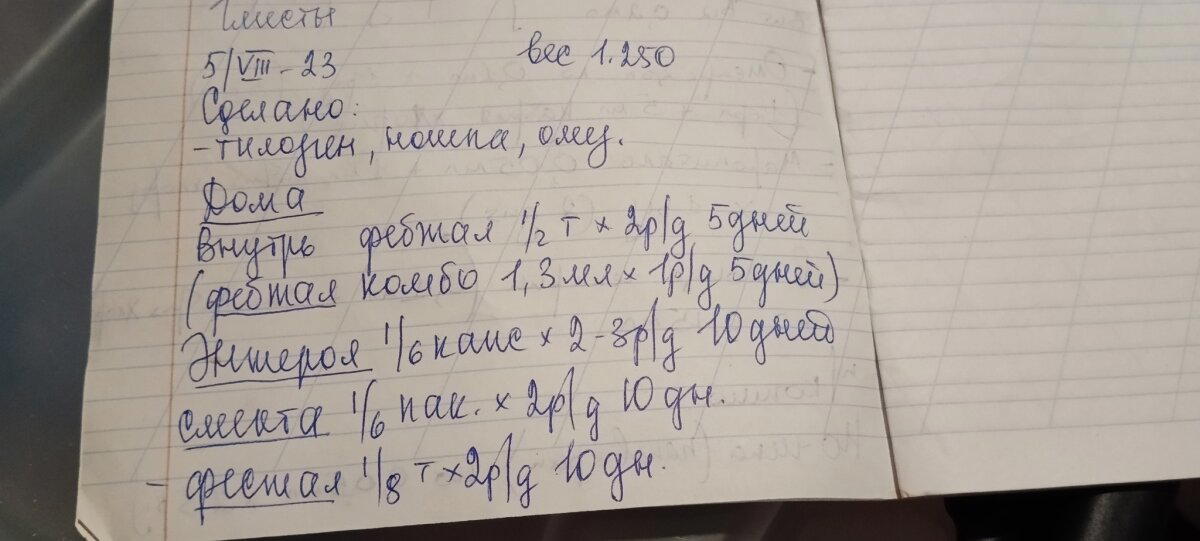 Глисты
5/VIII-23 вес 1.250
Сделано:
-тилозен, ношпа, омез.
Дома
Внутрь фебтал 1/2 т × 2р/д 5дней
(фебтал комбо 1,3 мл × 1р/д 5дней)
Энтерол 1/6 капс × 2-3р/д 10 дней
смекта 1/6 пак. × 2р/д 10 дн.
- фестал 1/8 т ×2р/д 10 дн.